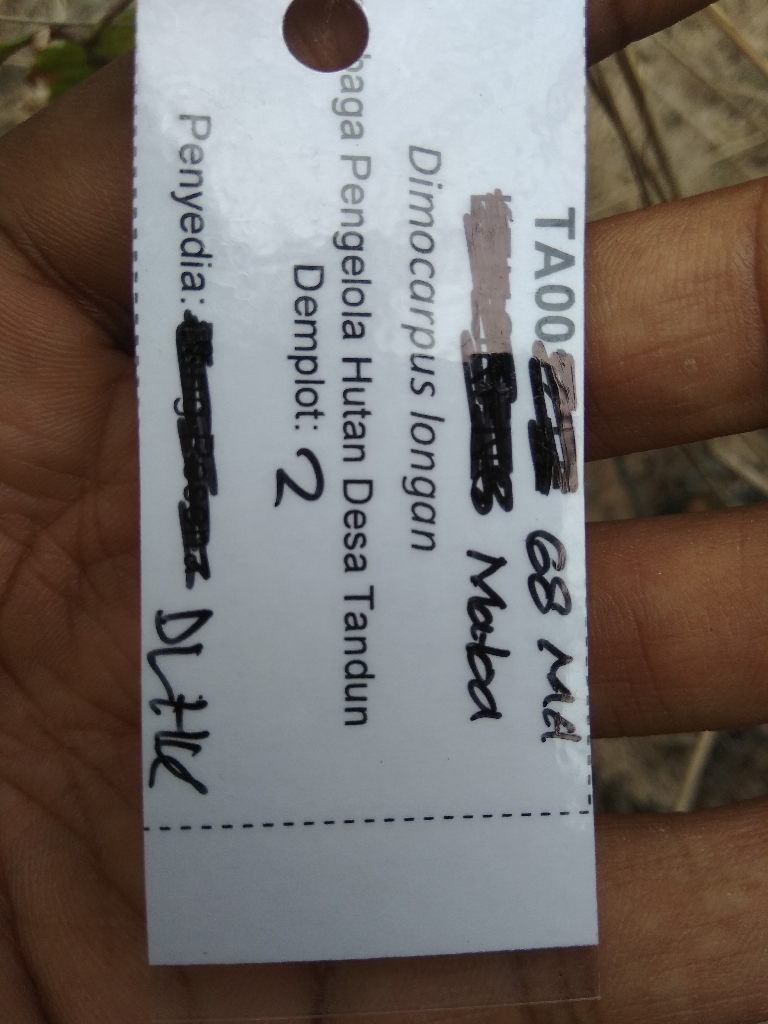 TA00 68 Ma
Maboa
Dimocarpus longan
baga Pengelola Hutan Desa Tandun
Demplot: 2
Penyedia: DLHK